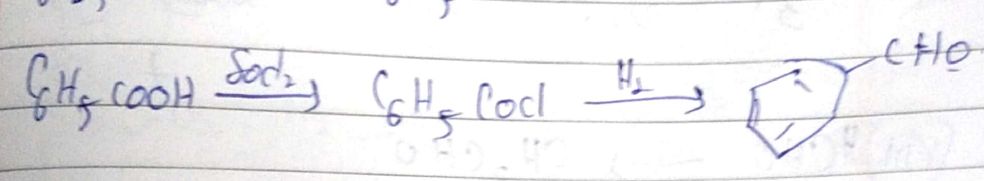 C₆H₅COOH —SOCl₂→ C₆H₅COCl —H₂→ CHO